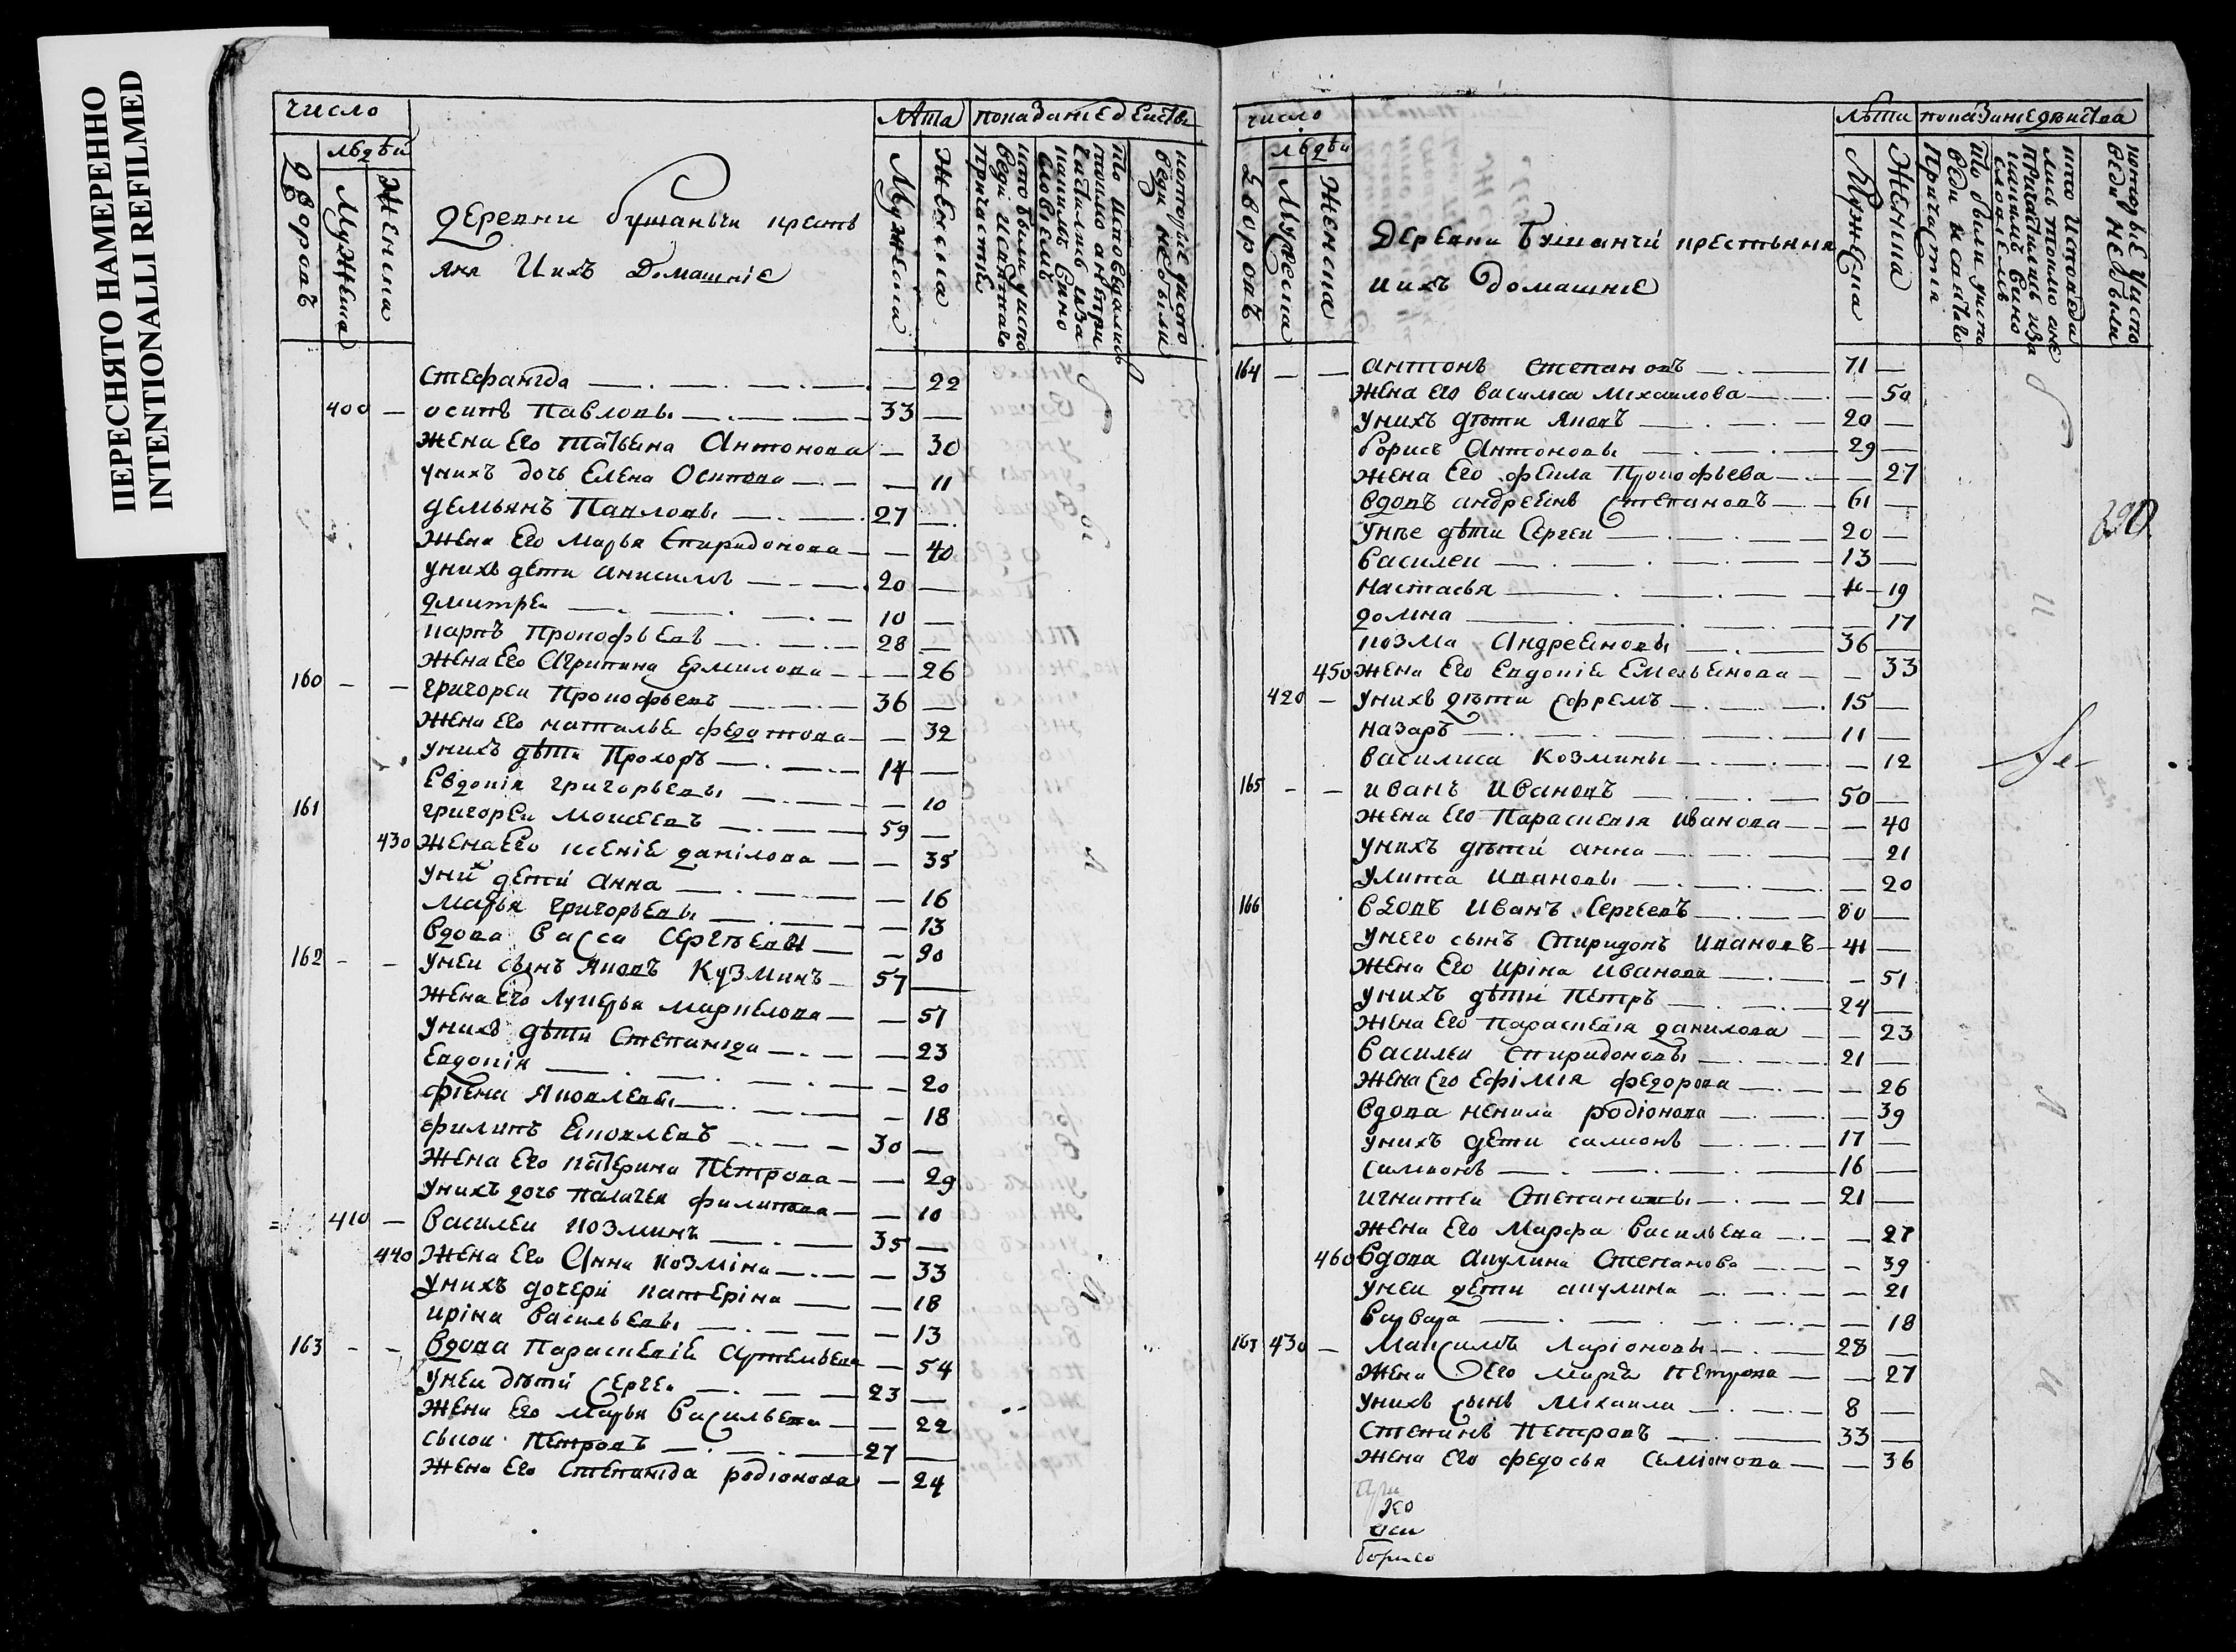 ПЕРЕСНЯТО НАМЕРЕННО
INTENTIONALLI REFILMED
число
людеи
дворовъ
Мужеска
Женска
деревни бушаньчи крестья
яня И ихъ домашніе
лѣта
показание деиства
Мужеска
женска
Стефанида 22
400 осипъ Павловы 33
жена Его татьяна Антонова 30
унихъ дочь Елена Осипова 11
демьянъ Павловы 27
жена Его марья Спиридонова 40
унихъ дети анисимъ 20
дмитреи 10
карпъ Прокофьевъ 28
жена Его Агрипина Ермилова 26
160 григореи Прокофьевъ 36
жена его наталья федотова 32
унихъ дѣти Прохоръ 14
Евдокія григорьевы 10
161 григореи Моисеевъ 59
430 жена Его ксенія данілова 35
уних дети анна 16
марья григорьевы 13
вдова васса Сергѣева 90
162 унеи сынъ яковъ Кузминъ 57
жена Его лукерья маркелова 51
унихъ дѣти Степанида 23
Евдокія 20
фіена яковлевы 18
филипъ Яковлевъ 30
жена Его катерина Петрова 29
унихъ дочь палагея филипова 10
410 Василеи козминъ 35
440 жена Его Анна козміна 33
унихъ дочери катеріна 18
иріна Васильевы 13
163 вдова Параскевія Артемьева 54
унеи дѣти Сергеи 23
жена Его марья Васильева 22
Петровъ 27
жена Его Степанида родіонова 24
число
людеи
дворовъ
Мужеска
женска
Деревни бушанчи крестьяня
и ихъ домашніе
лѣта
показание дѣиства
Мужеска
Женска
164 антонъ Степановъ 71
жена его василиса михаилова 50
унихъ дѣти яковъ 20
борисъ Антоновы 29
жена Его фекла Прокофьева 27
вдовъ андреянъ Степановъ 61
унѣе дѣти Сергеи 20
василеи 13
настасья 19
домна 17
козма Андреяновы 36
450 жена Его Евдокія Емельянова 33
420 унихъ дѣти Ефремъ 15
назаръ 11
василиса козмины 12
165 иванъ Ивановъ 50
жена Его Параскевія Иванова 40
унихъ дѣти анна 21
улита Ивановы 20
166 вдовъ Иванъ Сергеевъ 80
унего сынъ Спиридонъ Ивановъ 41
жена Его Иріна Иванова 51
унихъ дѣти Петръ 24
жена Его Параскевія данилова 23
василеи Спиридоновы 21
жена Его Ефімія федорова 26
вдова ненила родіонова 39
унихъ дети самсонъ 17
симионъ 16
игнатеи Степановы 21
жена Его Марфа васильева 27
460 вдова акулина Степанова 39
унеи дети акулина 21
варвара 18
167 430 Максимъ Ларіоновы 28
жена Его марья Петрова 27
унихъ сынъ михаила 8
Степанъ Петровъ 33
жена Его федосья Семіонова 36